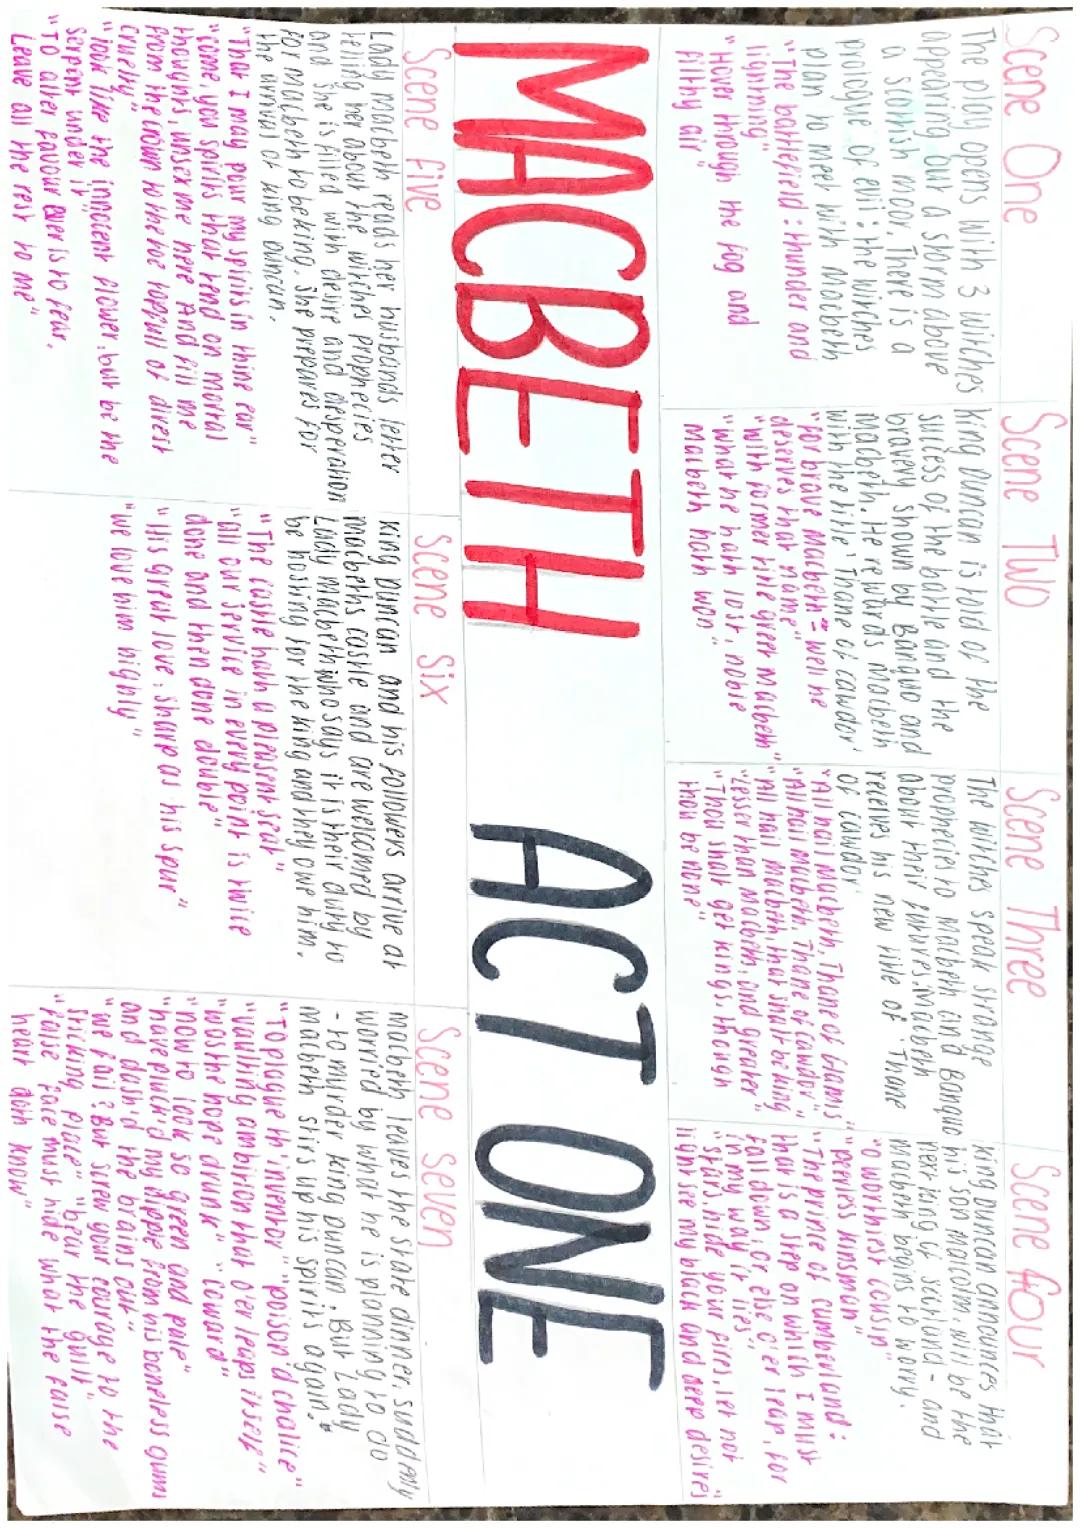 Scene One
The play opens with 3 witches
appearing out a storm above
a scottish moor. There is a
prologue of evil : the witches
plan to meet with Macbeth
"The battlefield : thunder and
lightning"
"Hover through the fog and
filthy air"
Scene Two
King Duncan is told of the
success of the battle and the
bravery shown by Banquo and
Macbeth. He rewards Macbeth
with the title 'Thane of Cawdor'
"For brave Macbeth - well he
deserves that name"
"with former title greet Macbeth"
"what he hath lost, noble
Macbeth hath won"
Scene Three
The witches speak strange
prophecies to Macbeth and Banquo
about their futures. Macbeth
receives his new title of 'Thane
of Cawdor'
"All hail Macbeth, Thane of Glamis"
"All hail Macbeth, Thane of Cawdor"
"All hail Macbeth, that shalt be king"
"Lesser than Macbeth, and greater"
"Thou shalt get kings, though
thou be none"
Scene four
King Duncan announces that
his son Malcolm, will be the
next king of scotland - and
Macbeth begins to worry.
"O worthiest cousin"
"peerless kinsman"
"The prince of cumberland :
that is a step on which I must
fall down, or else o'er leap, for
in my way it lies"
"Stars, hide your fires, let not
light see my black and deep desires"
MACBETH ACT ONE
Scene five
Lady Macbeth reads her husbands letter
telling her about the witches prophecies
and she is filled with desire and desperation
for Macbeth to be king. She prepares for
the arrival of King Duncan.
"That I may pour my spirits in thine ear"
"come, you spirits that tend on mortal
thoughts, unsex me here And fill me
from the crown to the toe topfull of direst
cruelty"
"look like the innocent flower, but be the
serpent under it"
"To alter favour ever is to fear.
Leave all the rest to me"
Scene six
King Duncan and his followers arrive at
Macbeths castle and are welcomed by
Lady Macbeth who says it is their duty to
be hosting for the king and they owe him.
"The castle hath a pleasent seat"
"all our service in every point is twice
done and then done double"
"His great love, sharp as his spur"
"we love him highly"
Scene seven
Macbeth leaves the state dinner, suddenly
worried by what he is planning to do
- to murder King Duncan. But Lady
Macbeth stirs up his spirits again.
"To plague th'inventor" "poison'd chalice"
"vaulting ambition that o'er leaps itself"
"was the hope drunk" "coward"
"now to look so green and pale"
"have pluck'd my nipple from his boneless gums
and dash'd the brains out"
"we fail? But screw your courage to the
sticking place" "bear the guilt"
"False face must hide what the false
heart doth know"